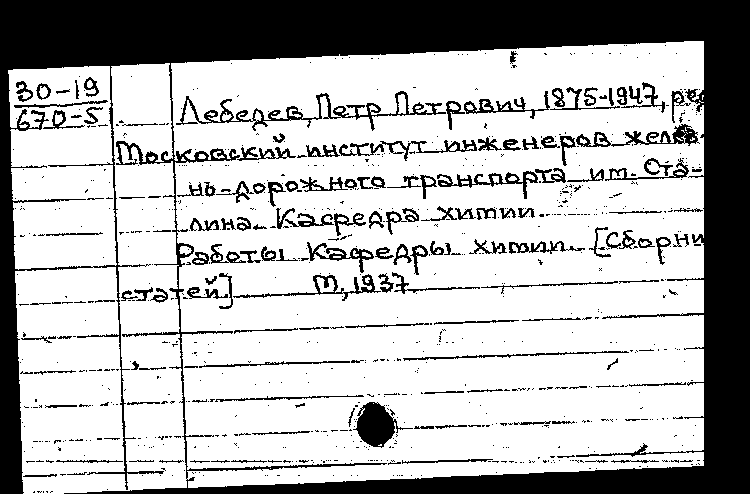 30-19
670-5
Лебедев, Петр Петрович, 1875-1947, ред
Московский институт инженеров желез-
но-дорожного транспорта им. Ста-
лина. Кафедра химии.
Работы Кафедры химии. [Сборни
статей] М, 1937